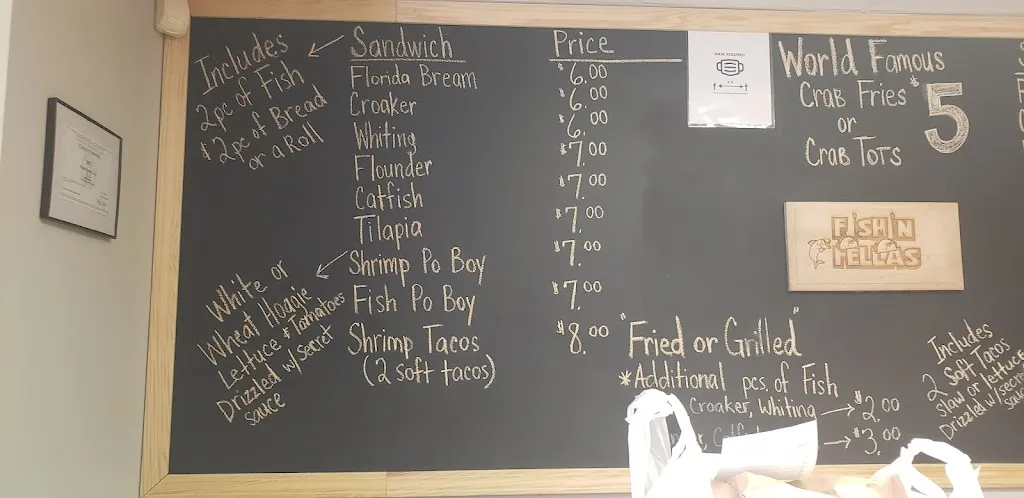 Includes
2pc of Fish
& 2pc of Bread
or a Roll
Sandwich
Florida Bream
Croaker
Whiting
Flounder
Catfish
Tilapia
Shrimp Po Boy
Fish Po Boy
Shrimp Tacos
(2 soft tacos)
White or
Wheat Hoagie
Lettuce & Tomatoes
Drizzled w/secret
sauce
Price
$6.00
$6.00
$6.00
$7.00
$7.00
$7.00
$7.00
$7.00
$8.00
MASK REQUIRED
World Famous
Crab Fries $5
or
Crab Tots
FISHIN
FELLAS
"Fried or Grilled"
*Additional pcs. of Fish
Croaker, Whiting → $2.00
→ $3.00
Includes
2 Soft Tacos
slaw or lettuce
Drizzled w/secret